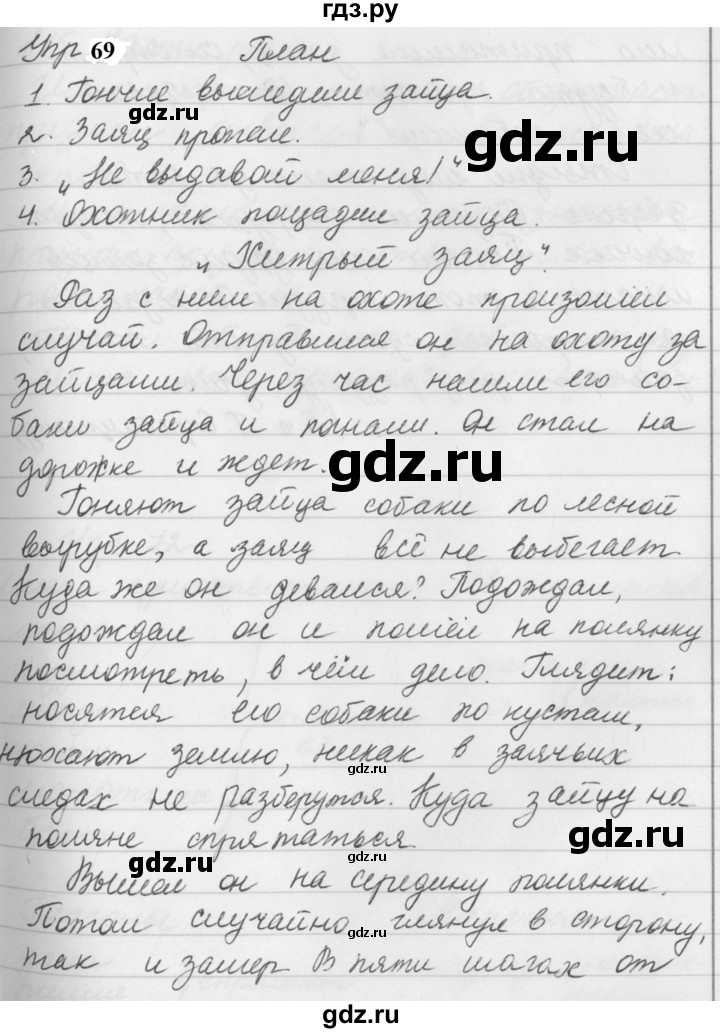 гдз.ру
Упр 69 План
1. Гончие выследили зайца.
2. Заяц пропал.
gdz.ru
3. „Не выдавай меня!"
4. Охотник пощадил зайца.
„Хитрый заяц".
Раз с ним на охоте произошёл
случай. Отправился он на охоту за
зайцами. Через час нашли его со-
баки зайца и погнали. Он стал на
дорожке и ждет.
gdz.ru
Гоняют зайца собаки по лесной
вырубке, а заяц всё не выбегает
Куда же он девался? Подождал,
подождал он и пошёл на полянку
посмотреть, в чём дело. Глядит:
носятся его собаки по кустам,
нюхают землю, никак в заячьих
следах не разберутся. Куда зайцу на
поляне спрятаться
gdz.ru
gdz.ru
Вышел он на середину полянки.
Потом случайно глянул в сторону,
так и замер В пяти шагах от
gdz.ru